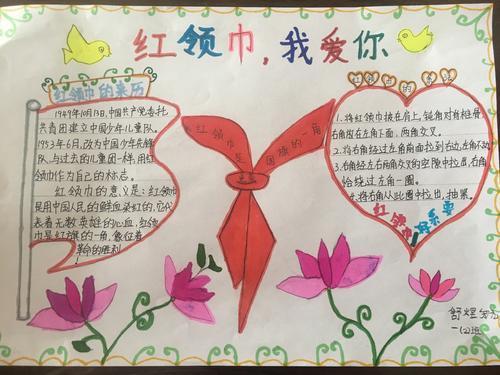 红领巾，我爱你
红领巾的来历
1949年10月13日，中国共产党委托
共青团建立中国少年儿童队。
1953年6月，改为中国少年先锋
队，与过去的儿童团一样，用红
领巾作为自己的标志。
红领巾的意义是：红领巾
是用中国人民的鲜血染红的，它代
表着无数英雄的心血，红领
巾是红旗的一角，象征着
革命的胜利
红领巾
是
国旗的一角
红领巾的
1.将红领巾披在肩上，钝角对脊柱骨，
右角放在左角下面，两角交叉。
2.将右角经过左角前面拉到右边，左角不动
3.右角经左右两角交叉的空隙中拉出，右角
恰绕过左角一圈。
4.将右角从此圈中拉出，抽紧。
红领巾
舒煜
一(2)班